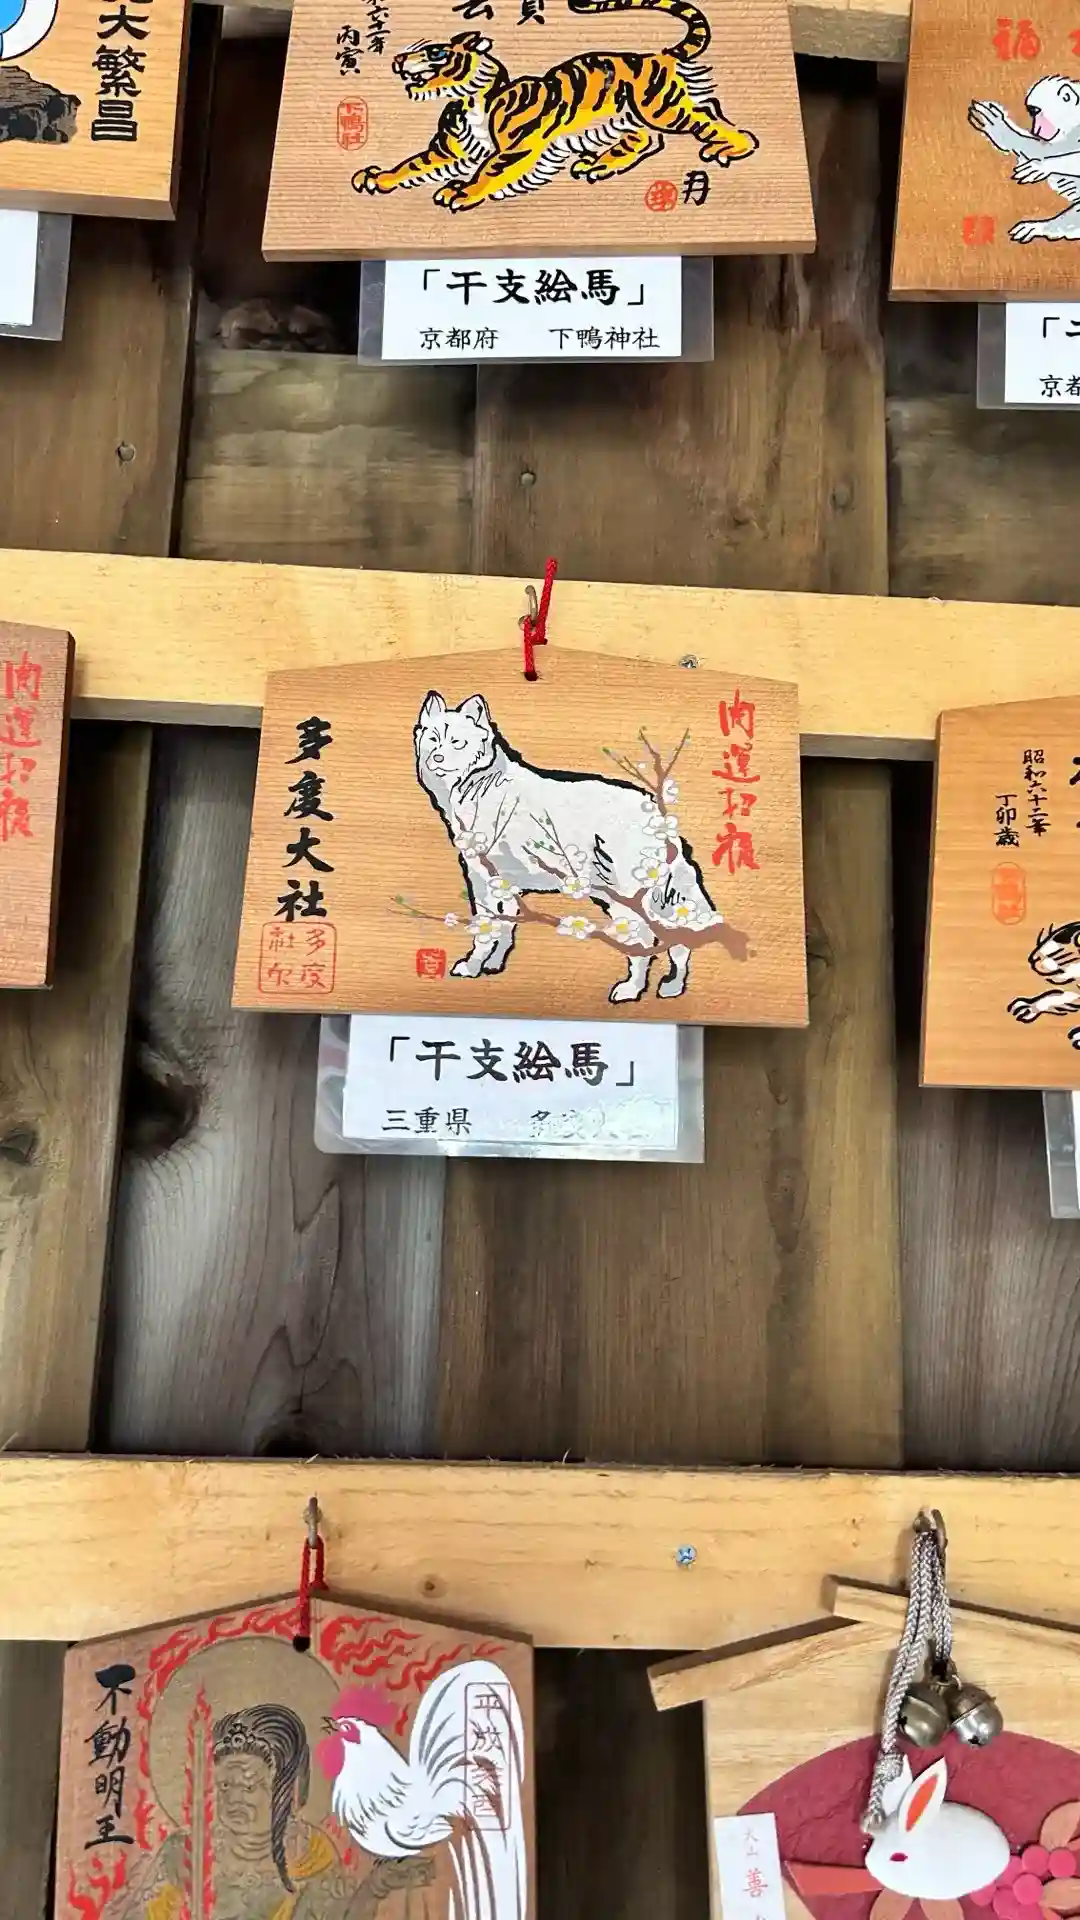 大繁昌
丙寅
下鴨社
月
「干支絵馬」
京都府 下鴨神社
福
京都
開運招福
多度大社
開運招福
多度
社
「干支絵馬」
三重県 多度大社
昭和六十二年
丁卯歳
不動明王
平成癸酉
大山
善